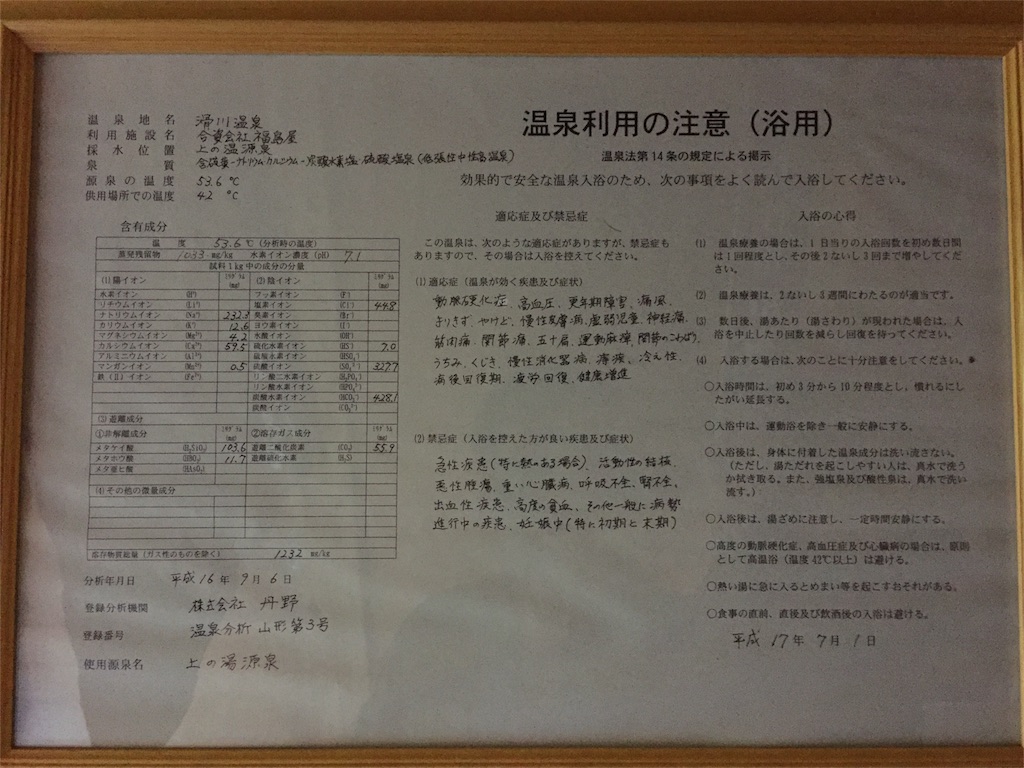 温泉地名 滑川温泉
利用施設名 合資会社福島屋
採水位置 上の湯源泉
泉質 含硫黄-ナトリウム・カルシウム-炭酸水素塩・硫酸塩温泉(低張性中性高温泉)
源泉の温度 53.6 ℃
供用場所での温度 42 ℃
含有成分
温度 53.6 ℃ (分析時の温度)
蒸発残留物 1033 mg/kg 水素イオン濃度 (pH) 7.1
試料1kg中の成分の分量
(1) 陽イオン ミリグラム (mg) (2) 陰イオン ミリグラム (mg)
水素イオン (H⁺) フッ素イオン (F⁻)
リチウムイオン (Li⁺) 塩素イオン (Cl⁻) 44.8
ナトリウムイオン (Na⁺) 232.3 臭素イオン (Br⁻)
カリウムイオン (K⁺) 12.6 ヨウ素イオン (I⁻)
マグネシウムイオン (Mg²⁺) 4.2 水酸イオン (OH⁻)
カルシウムイオン (Ca²⁺) 59.5 硫化水素イオン (HS⁻) 7.0
アルミニウムイオン (Al³⁺) 硫酸水素イオン (HSO₄⁻)
マンガンイオン (Mn²⁺) 0.5 硫酸イオン (SO₄²⁻) 327.7
鉄(Ⅱ)イオン (Fe²⁺) リン酸二水素イオン (H₂PO₄⁻)
リン酸水素イオン (HPO₄²⁻)
炭酸水素イオン (HCO₃⁻) 428.1
炭酸イオン (CO₃²⁻)
(3) 遊離成分
①非解離成分 ミリグラム (mg) ②溶存ガス成分 ミリグラム (mg)
メタケイ酸 (H₂SiO₃) 103.6 遊離二酸化炭素 (CO₂) 55.9
メタホウ酸 (HBO₂) 11.7 遊離硫化水素 (H₂S)
メタ亜ヒ酸 (HAsO₂)
(4) その他の微量成分
溶存物質総量 (ガス性のものを除く) 1232 mg/kg
分析年月日 平成16年9月6日
登録分析機関 株式会社 丹野
登録番号 温泉分析 山形第3号
使用源泉名 上の湯源泉
温泉利用の注意(浴用)
温泉法第14条の規定による掲示
効果的で安全な温泉入浴のため、次の事項をよく読んで入浴してください。
適応症及び禁忌症
この温泉は、次のような適応症がありますが、禁忌症も
ありますので、その場合は入浴を控えてください。
(1) 適応症(温泉が効く疾患及び症状)
動脈硬化症、高血圧、更年期障害、痛風、
きりきず、やけど、慢性皮膚病、虚弱児童、神経痛、
筋肉痛、関節痛、五十肩、運動麻痺、関節のこわばり、
うちみ、くじき、慢性消化器病、痔疾、冷え性、
病後回復期、疲労回復、健康増進
(2) 禁忌症(入浴を控えた方が良い疾患及び症状)
急性疾患(特に熱のある場合)、活動性の結核、
悪性腫瘍、重い心臓病、呼吸不全、腎不全、
出血性疾患、高度の貧血、その他一般に病勢
進行中の疾患、妊娠中(特に初期と末期)
入浴の心得
(1) 温泉療養の場合は、1日当りの入浴回数を初め数日間
は1回程度とし、その後2ないし3回まで増やしてくだ
さい。
(2) 温泉療養は、2ないし3週間にわたるのが適当です。
(3) 数日後、湯あたり(湯さわり)が現われた場合は、入
浴を中止したり回数を減らし回復を待ってください。
(4) 入浴する場合は、次のことに十分注意してください。
○入浴時間は、初め3分から10分程度とし、慣れるにし
たがい延長する。
○入浴中は、運動浴を除き一般に安静にする。
○入浴後は、身体に付着した温泉成分は洗い流さない。
(ただし、湯ただれを起こしやすい人は、真水で洗う
か拭き取る。また、強塩泉及び酸性泉は、真水で洗い
流す。)
○入浴後は、湯ざめに注意し、一定時間安静にする。
○高度の動脈硬化症、高血圧症及び心臓病の場合は、原則
として高温浴(温度42℃以上)は避ける。
○熱い湯に急に入るとめまい等を起こすおそれがある。
○食事の直前、直後及び飲酒後の入浴は避ける。
平成17年7月1日